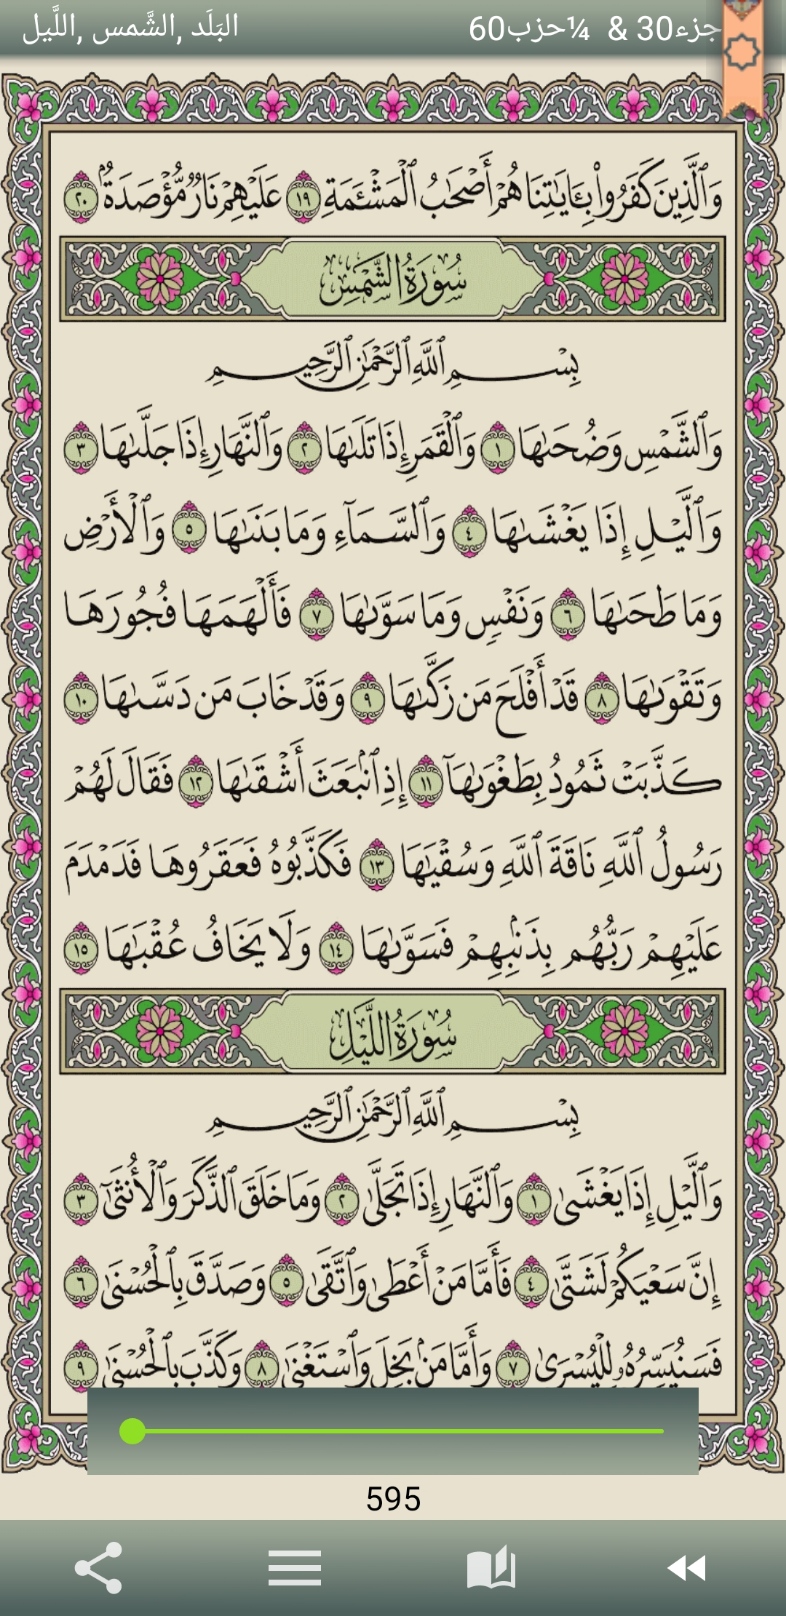 البَلَد ,الشَّمس ,اللَّيل
جزء30 & ¼حزب60
وَٱلَّذِينَ كَفَرُواْ بِـَٔايَٰتِنَا هُمْ أَصْحَٰبُ ٱلْمَشْـَٔمَةِ ١٩ عَلَيْهِمْ نَارٌ مُّؤْصَدَةٌۢ ٢٠
سُورَةُ الشَّمْسِ
بِسْمِ ٱللَّهِ ٱلرَّحْمَٰنِ ٱلرَّحِيمِ
وَٱلشَّمْسِ وَضُحَىٰهَا ١ وَٱلْقَمَرِ إِذَا تَلَىٰهَا ٢ وَٱلنَّهَارِ إِذَا جَلَّىٰهَا ٣
وَٱلَّيْلِ إِذَا يَغْشَىٰهَا ٤ وَٱلسَّمَآءِ وَمَا بَنَىٰهَا ٥ وَٱلْأَرْضِ
وَمَا طَحَىٰهَا ٦ وَنَفْسٍ وَمَا سَوَّىٰهَا ٧ فَأَلْهَمَهَا فُجُورَهَا
وَتَقْوَىٰهَا ٨ قَدْ أَفْلَحَ مَن زَكَّىٰهَا ٩ وَقَدْ خَابَ مَن دَسَّىٰهَا ١٠
كَذَّبَتْ ثَمُودُ بِطَغْوَىٰهَآ ١١ إِذِ ٱنۢبَعَثَ أَشْقَىٰهَا ١٢ فَقَالَ لَهُمْ
رَسُولُ ٱللَّهِ نَاقَةَ ٱللَّهِ وَسُقْيَٰهَا ١٣ فَكَذَّبُوهُ فَعَقَرُوهَا فَدَمْدَمَ
عَلَيْهِمْ رَبُّهُم بِذَنۢبِهِمْ فَسَوَّىٰهَا ١٤ وَلَا يَخَافُ عُقْبَٰهَا ١٥
سُورَةُ اللَّيْلِ
بِسْمِ ٱللَّهِ ٱلرَّحْمَٰنِ ٱلرَّحِيمِ
وَٱلَّيْلِ إِذَا يَغْشَىٰ ١ وَٱلنَّهَارِ إِذَا تَجَلَّىٰ ٢ وَمَا خَلَقَ ٱلذَّكَرَ وَٱلْأُنثَىٰٓ ٣
إِنَّ سَعْيَكُمْ لَشَتَّىٰ ٤ فَأَمَّا مَنْ أَعْطَىٰ وَٱتَّقَىٰ ٥ وَصَدَّقَ بِٱلْحُسْنَىٰ ٦
فَسَنُيَسِّرُهُۥ لِلْيُسْرَىٰ ٧ وَأَمَّا مَنۢ بَخِلَ وَٱسْتَغْنَىٰ ٨ وَكَذَّبَ بِٱلْحُسْنَىٰ ٩
595